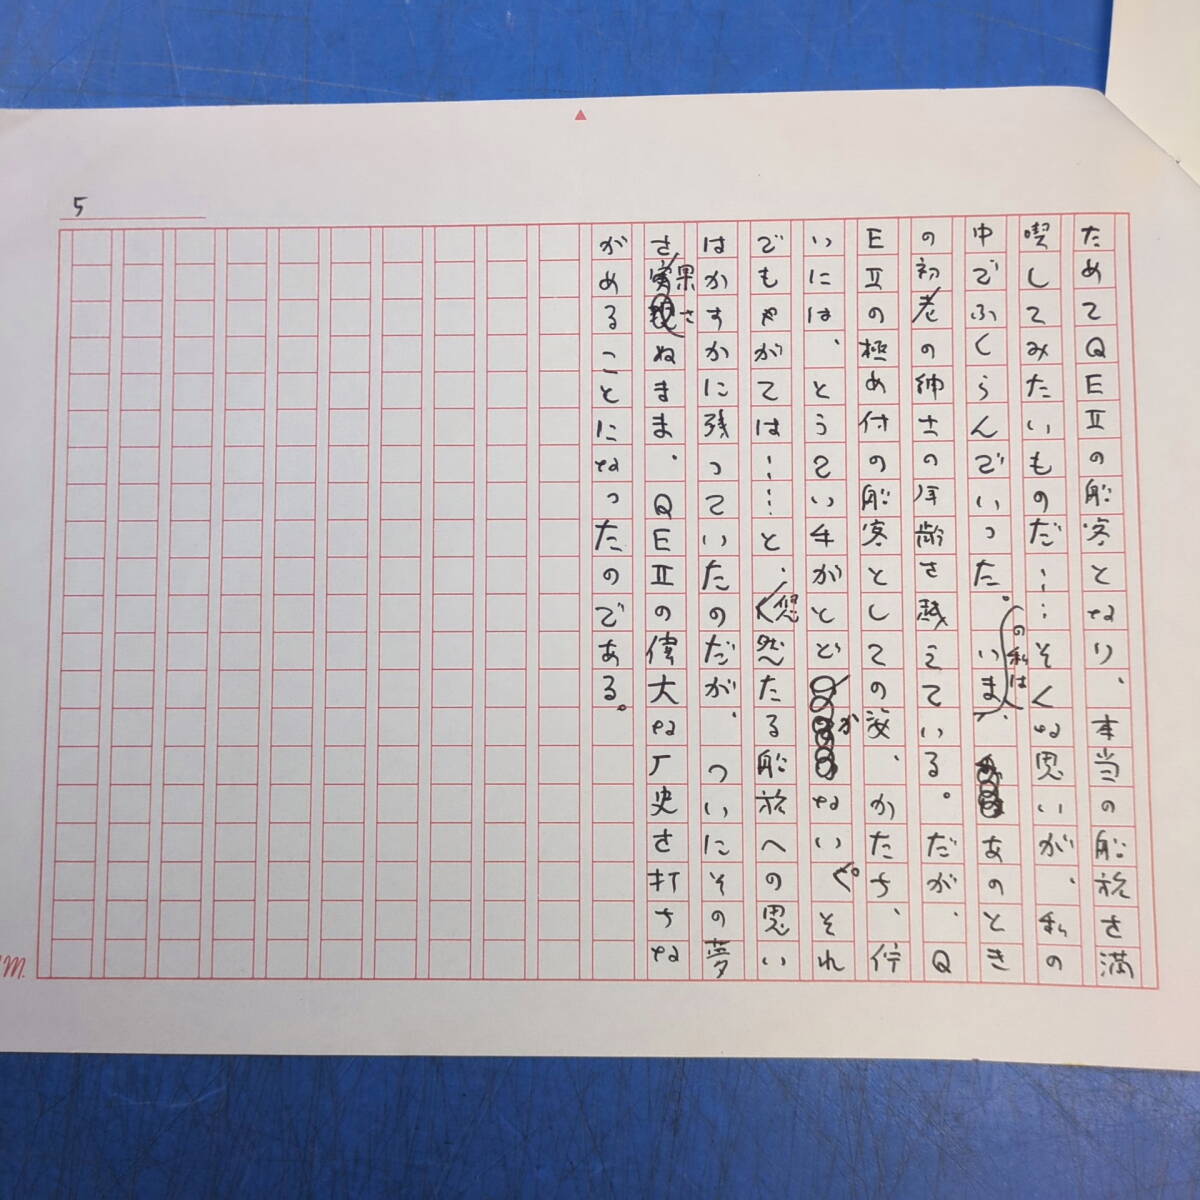 5
ためてQEⅡの船客となり、本当の船旅を満
喫してみたいものだ……そんな思いが、私の
中でふくらんでいった。いまの私は、あのとき
の初老の紳士の年齢を越えている。だが、Q
EⅡの極め付の船客としての姿、かたち、佇
いには、とうてい手がとどかない。それ
でもやがては……と、悠然たる船旅への思い
はかすかに残っていたのだが、ついにその夢
を果さぬまま、QEⅡの偉大な厂史を打ちな
がめることになったのである。